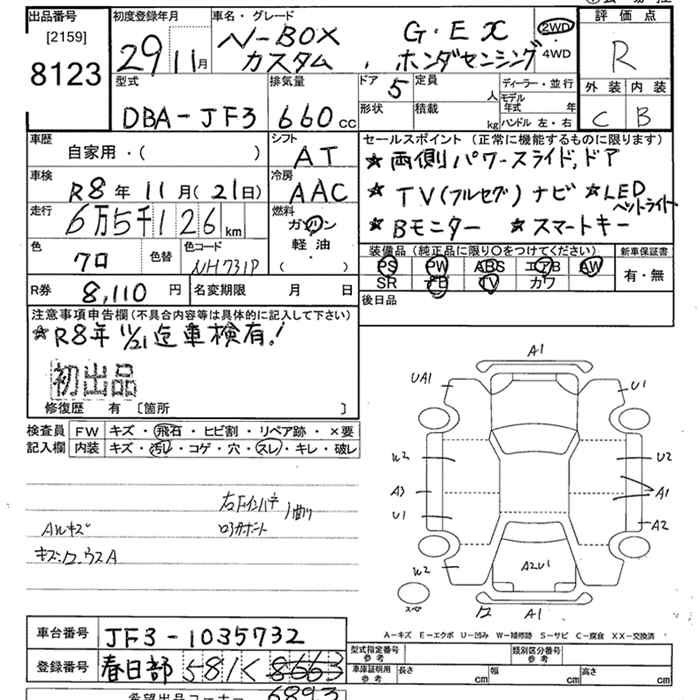 出品番号 初度登録年月 車名・グレード 評価点
[2159] 29 11月 N-BOX G・EX 2WD R
8123 カスタム ホンダセンシング ・4WD
外装 内装
型式 排気量 ドア 5 定員 人 ディーラー・並行 C B
DBA-JF3 660 cc 形状 積載 kg モデル年式 年
ハンドル 左・右
車歴 シフト セールスポイント (正常に機能するものに限ります)
自家用・( ) AT ★両側パワースライドドア
車検 冷房 ★TV(フルセグ)ナビ ★LED
R8年 11月(21日) AAC ヘッドライト
走行 燃料 ★Bモニター ★スマートキー
6万5千126km ガソリン
軽油
( )
色 色替 色コード 装備品(純正品に限り○をつけてください) 新車保証書
クロ NH731P PS PW ABS エアB AW 有・無
SR ナビ TV カワ
R券 8,110円 名変期限 月 日 後日品
注意事項申告欄(不具合内容等は具体的に記入して下さい)
★R8年 11/21迄車検有!
初出品
修復歴 有 [箇所 ]
検査員 FW キズ・飛石・ヒビ割・リペア跡・×要
記入欄 内装 キズ・汚レ・コゲ・穴・スレ・キレ・破レ
Aルキズ
A1
UA1 U1
W2 U2
A3 A1
U1 A2
W2 A2U1
スペア A1
A-キズ E-エクボ U-凹み W-補修跡 S-サビ C-腐食 XX-交換済
車台番号 JF3-1035732
型式指定番号 参考 類別区分番号 参考
登録番号 春日部 581く8663
車庫証明用 参考 長さ cm 幅 cm 高さ cm
希望出品コーナー 6893